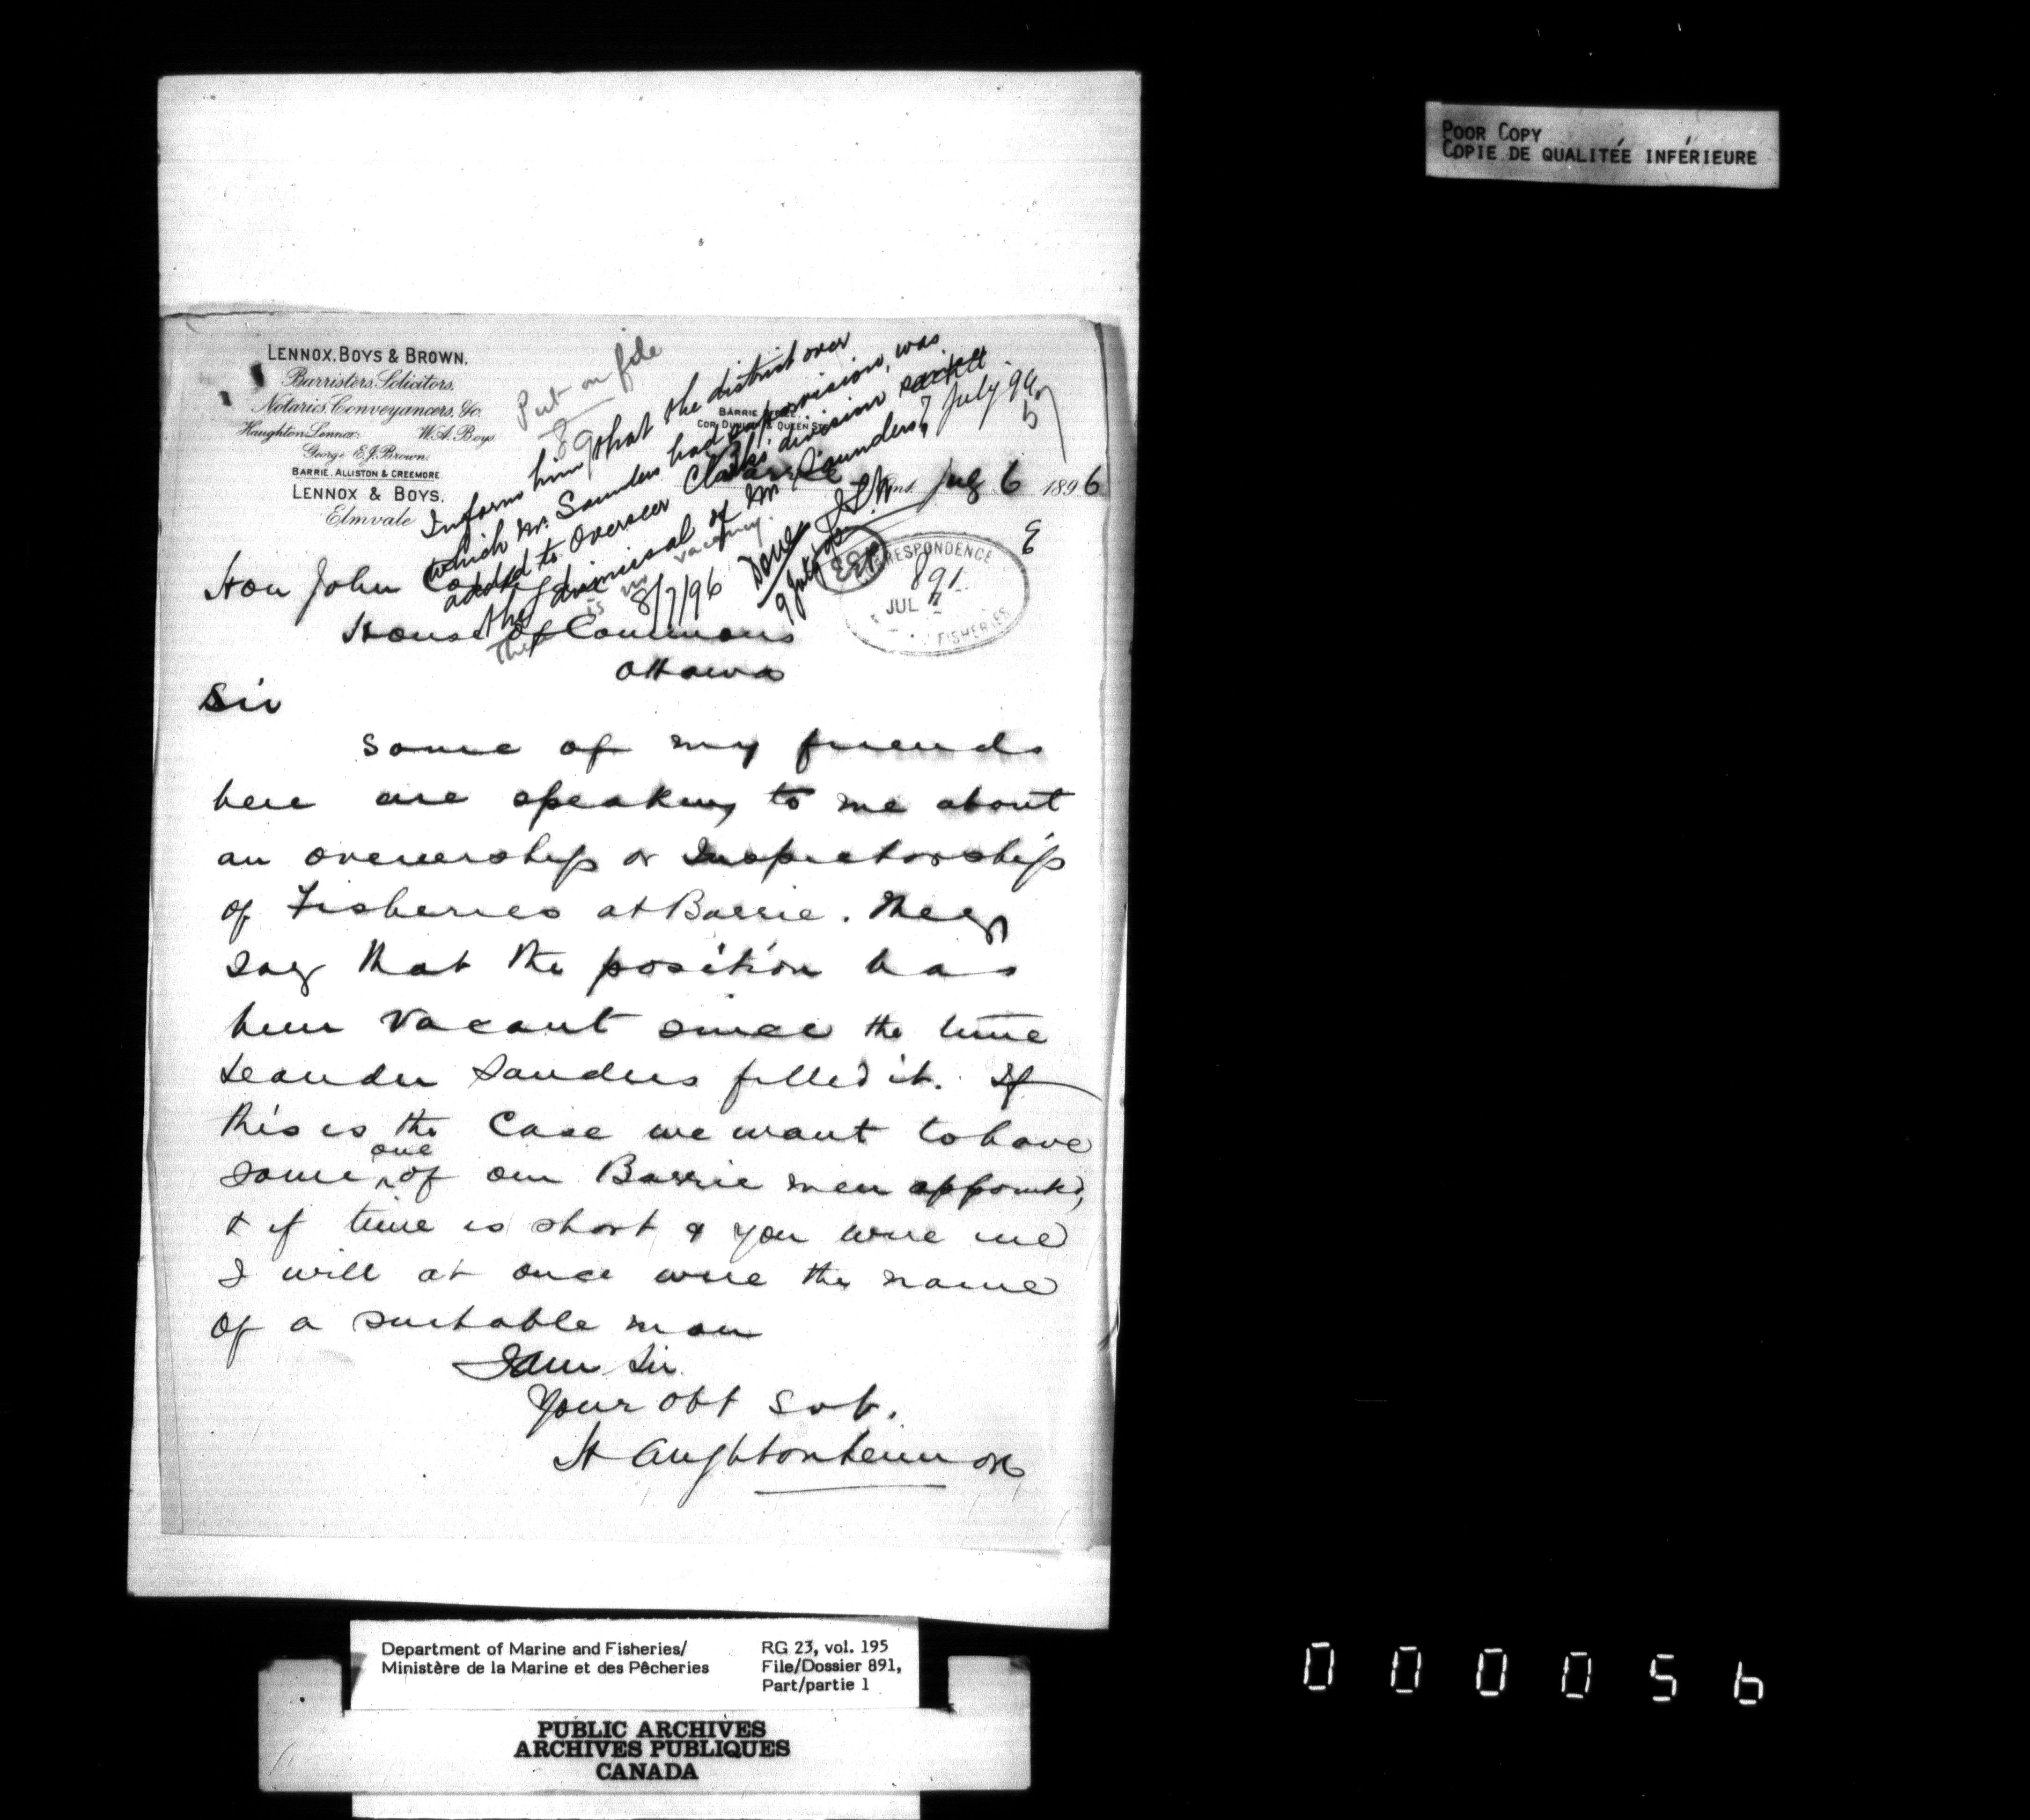 POOR COPY
COPIE DE QUALITÉE INFÉRIEURE
LENNOX, BOYS & BROWN.
Barristers, Solicitors,
Notaries, Conveyancers, &c.
Haughton Lennox. W.A. Boys
George E.J. Brown.
BARRIE, ALLISTON & CREEMORE
LENNOX & BOYS,
Elmvale
Put on file
89
Inform him that the district over
which Mr. Saunders had supervision, was
added to Overseer Clark's division
the dismissal of Mr Saunders, 7 July 94
There is no vacancy.
8/7/96
Done
9 July
BARRIE OFFICE
COR. DUNLOP & QUEEN STS
Barrie Ont. July 6 1896
CORRESPONDENCE
891
JUL 7
FISHERIES
Hon John
House of Commons
Ottawa
Sir
Some of my friends
here are speaking to me about
an overseership or Inspectorship
of Fisheries at Barrie. They
say that the position has
been vacant since the time
Leander Sanders filled it. If
this is the case we want to have
some one of our Barrie men appointed,
& if time is short & you wire me
I will at once wire the name
of a suitable man
I am Sir
Your obt Svt.
Haughton Lennox
Department of Marine and Fisheries/
Ministère de la Marine et des Pêcheries
RG 23, vol. 195
File/Dossier 891,
Part/partie 1
PUBLIC ARCHIVES
ARCHIVES PUBLIQUES
CANADA
000056